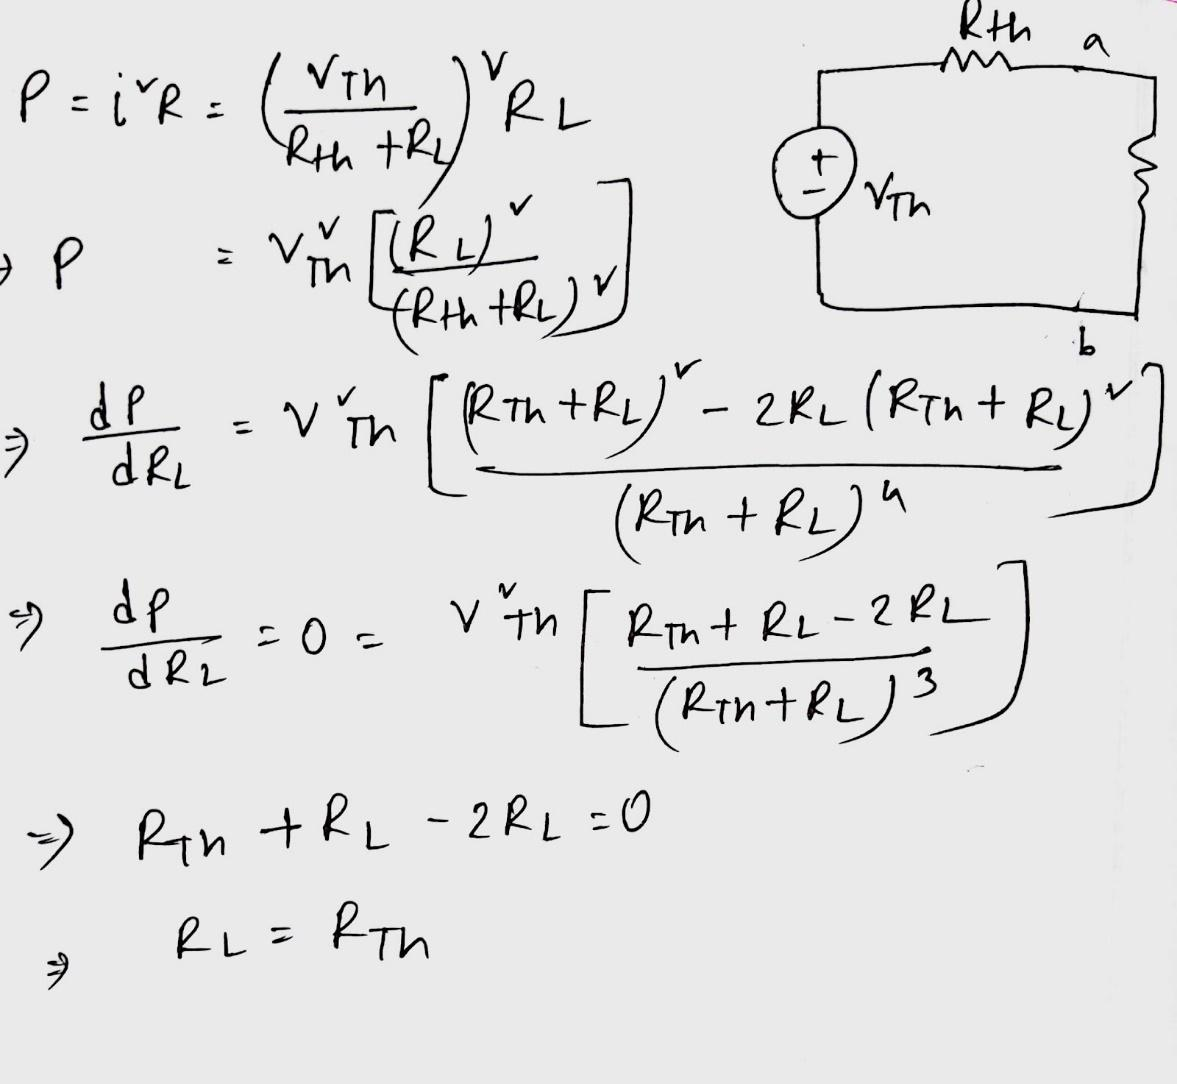 P = i²R = (V_Th / (R_th + R_L))² R_L
⇒ P = V_Th² [(R_L)² / (R_th + R_L)²]
⇒ dP/dR_L = V²_Th [((R_Th + R_L)² - 2R_L (R_Th + R_L)²) / (R_Th + R_L)⁴]
⇒ dP/dR_L = 0 = V²_Th [(R_Th + R_L - 2R_L) / (R_Th + R_L)³]
⇒ R_Th + R_L - 2R_L = 0
⇒ R_L = R_Th
R_th
a
+
-
V_Th
b